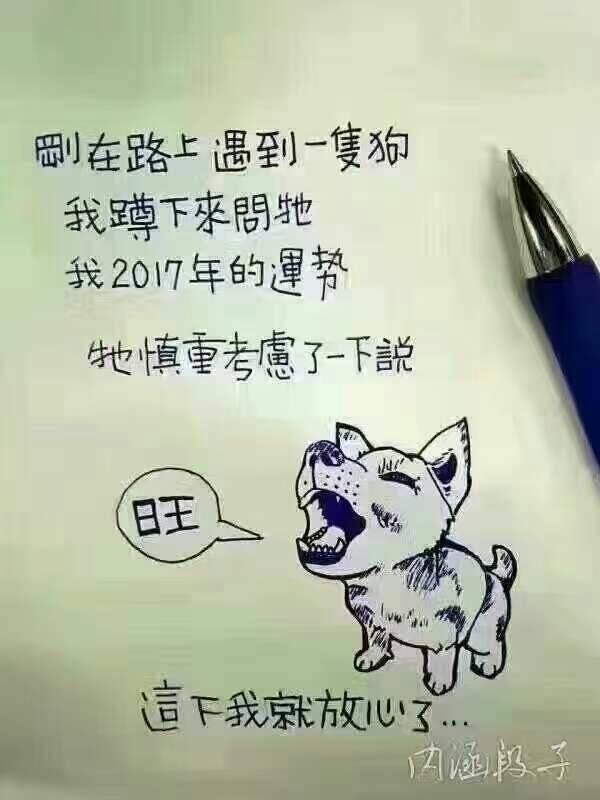 剛在路上遇到一隻狗
我蹲下來問牠
我2017年的運势
牠慎重考慮了一下説
旺
這下我就放心了...
内涵段子